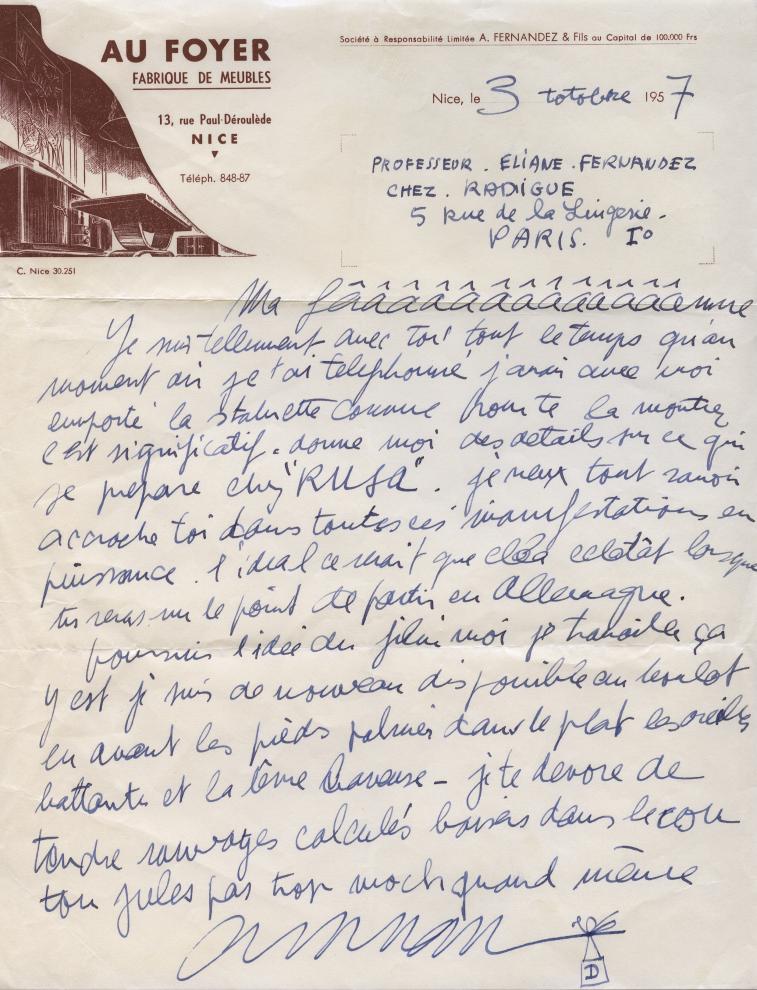 AU FOYER
FABRIQUE DE MEUBLES
13, rue Paul-Déroulède
NICE
Téléph. 848-87
C. Nice 30.251
Société à Responsabilité Limitée A. FERNANDEZ & Fils au Capital de 100.000 Frs
Nice, le 3 totobre 1957
PROFESSEUR. ELIANE. FERNANDEZ
CHEZ. RADIGUE
5 rue de la Lingerie.
PARIS. I°
Ma fâââââââââââââmme
Je suis tellement avec toi tout le temps qu'au
moment où je t'ai telephonné j'avais avec moi
emporté la statuette comme pour te la montrer
c'est significatif. donne moi des details sur ce qui
se prepare chez "RUSA". je veux tout savoir
accroche toi dans toutes ces manifestations en
puissance. l'ideal ce serait que cela eclatât lorsque
tu seras sur le point de partir en Allemagne.
poursuis l'idée du film moi je travaille ça
y est je suis de nouveau disponible au boulot
en avant les pieds palmés dans le plat les oreilles
battantes et la lèvre baveuse - je te devore de
tendre sauvages calculés baisers dans le cou
ton jules pas trop moch quand même
arman
A